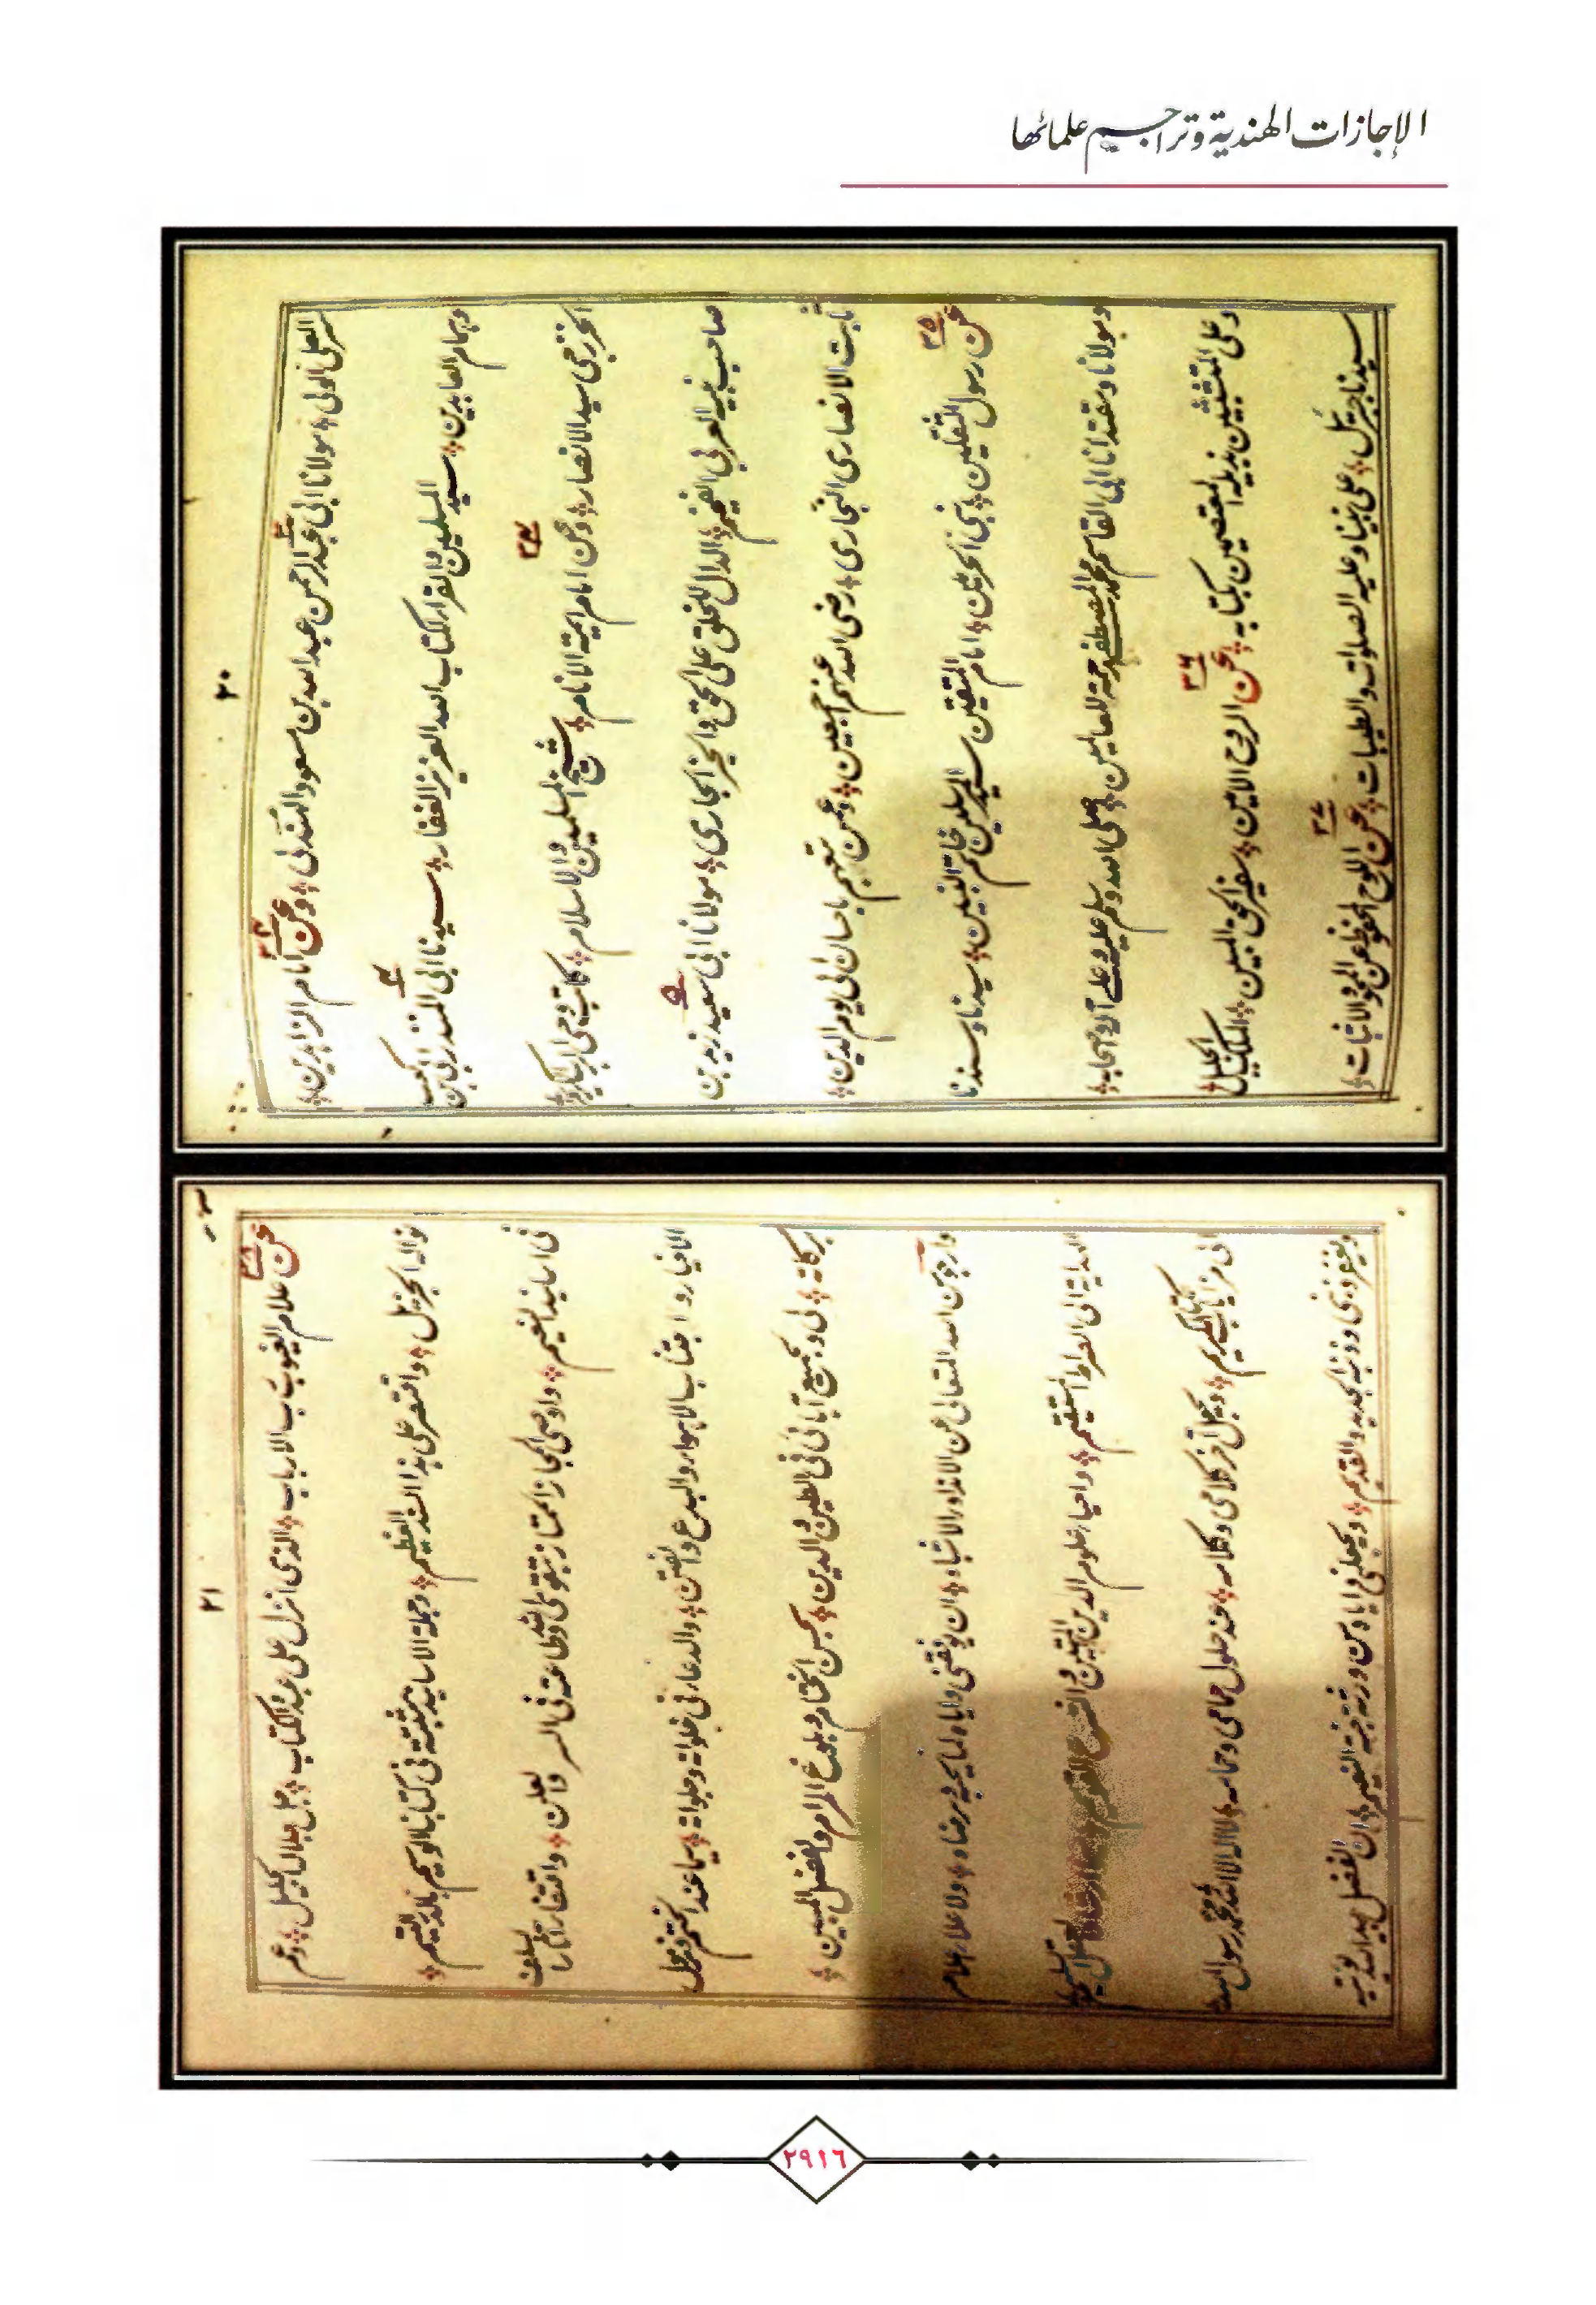 الإجازات الهندية وتراجيم علمائها
٢٠
السري العلي الولي مولانا ابي عبد الرحمن عبد الله بن مسعود الهذلي وعن امام الزاهدين
وهمام العابدين سيد المسلمين والقراء لكتاب الله العزيز الغفار سيدنا ابي المنذر ابي بن كعب
الخزرجي سيد الانصار وعن امام ايمة الانام شيخ المسلمين والاسلام كاتب وحي
صاحب نبيه العربي الفخيم الدال للخلق على الحق والخير الجاري مولانا ابي سعيد زيد بن
ثابت الانصاري النجاري رضى الله عنهم اجمعين وعمن تبعهم باحسان الى يوم الدين
٣٥
عن رسول الثقلين نبي الحرمين امام المتقين سيد المرسلين خاتم النبيين سيدنا وسندنا
ومولانا ومقتدانا ابي القاسم محمد المصطفى رحمة للعالمين صلى الله وسلم عليه وعلى آله وصحابه
وعلى المتشبثين بذيله المعتصمين بكتابه عن الروح الامين سفير الحق المبين الملك الجليل
٣٦
سيدنا جبرئيل على نبينا وعليه الصلوات والطيبات عن اللوح المحفوظ عن المحو والاثبات
٣٧
٢١
عن علام الغيوب رب الارباب الذي انزل على عبده الكتاب جل جلاله وعم
٣٨
نواله الجزيل واقتصر على هذا السند العظيم وجملة الاسانيد مثبتة في كتابنا الوسيم بالدر النظيم
في اسانيد واوصي المجاز الممتاز بتقوى الله وطاعته في السر والعلن واقتفاء آثار السلف
الاخيار واجتناب الاهواء والبدع والفتن والدعاء في خلواته وجلواته سيما عند الختم ومحل
بركاته لي ولجميع آبائي في الطين والدين بحسن الختام وبلوغ المرام والفضل المبين
وارجو من الله المتعالي عن الانداد والاشباه ان يوفقني واياه لما يحبه ويرضاه ولاعلاء اعلام
الهداية الى الصراط المستقيم واحياء علوم الدين المتين والشرع القويم
الى مزايا كتابه الكريم ويجعل آخر كلامي وكلامه عند حلول حمامي وحمامه لا اله الا الله محمد رسول الله
ويغفر ذنبي وذنبه الجديد والقديم ويجعلني واياه من ورثة جنة النعيم ان الفضل بيد الله يوتيه
٢٩١٦